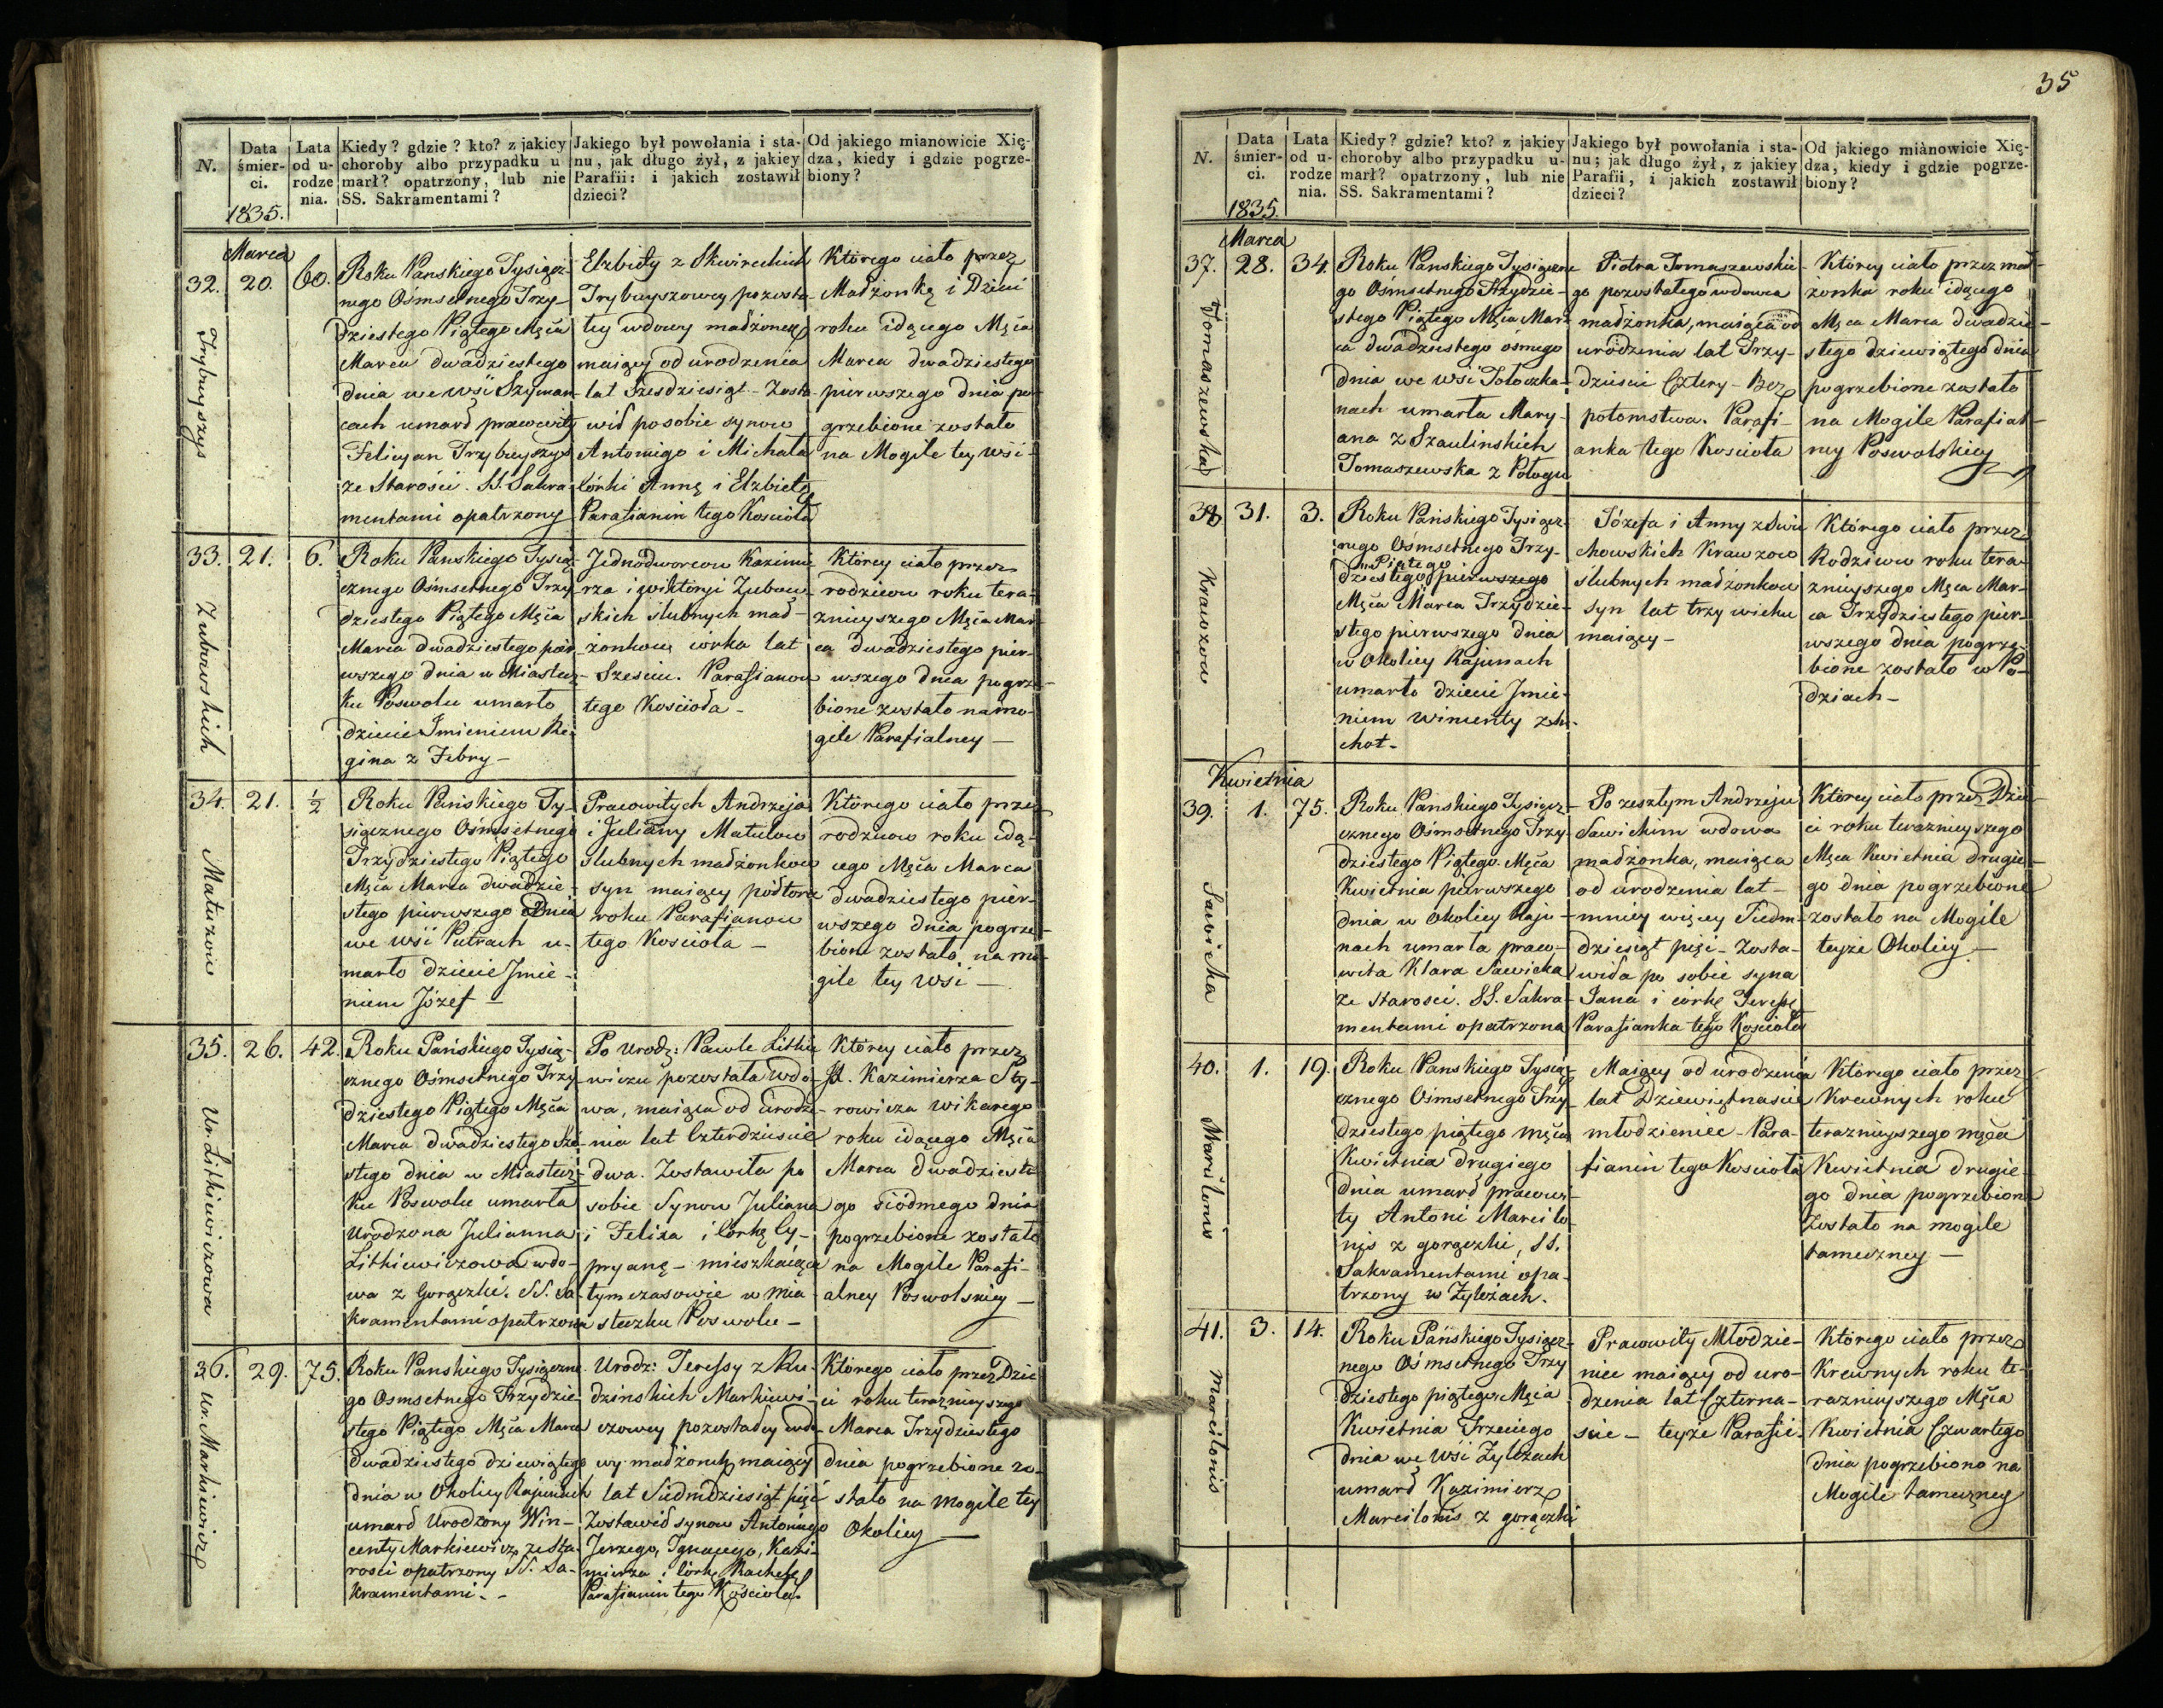 N.
Data śmierci.
1835.
Lata od urodzenia.
Kiedy? gdzie? kto? z jakiey
choroby albo przypadku u
marł? opatrzony, lub nie
SS. Sakramentami?
Jakiego był powołania i sta-
nu, jak długo żył, z jakiey
Parafii: i jakich zostawił
dzieci?
Od jakiego mianowicie Xię-
dza, kiedy i gdzie pogrze-
biony?
Marca
32.
Trybuyszys
20.
60.
Roku Panskiego Tysiącz-
nego Ośmsetnego Trzy-
dziestego Piątego Męca
Marca dwadziestego
dnia we wsi Szyman-
cach umarł pracowity
Felicyan Trybuyszys
ze Starości. SS. Sakra-
mentami opatrzony
Elzbiety z Skwireckich
Trybuyszowey pozosta-
łey wdowy madżonek
maiący od urodzenia
lat Szesdziesiąt - Zosta-
wił po sobie synow
Antoniego i Michała
Córki Annę i Elzbietę
Parafianin tego Kościoła
Którego ciało przez
Madżonkę i Dzieci
roku idącego Męca
Marca dwadziestego
pierwszego dnia po-
grzebione zostało
na Mogile tey wsi -
33.
Zubowskich
21.
6.
Roku Panskiego Tysią-
cznego Ośmsetnego Trzy
dziestego Piątego Męca
Marca dwadziestego pier
wszego dnia w Miastecz-
ku Poswolu umarło
dziecie Imieniem Re-
gina z Febry -
Jednodworcow Kazimie
rza i Wiktoryi Zubow-
skich slubnych mad-
żonkow córka lat
Szesciu. Parafianow
tego Kościoła -
Którey ciało przez
rodzicow roku tera-
znieyszego Męca Mar-
ca dwadziestego pier-
wszego dnia pogrze-
bione zostało na mo-
gile Parafialney -
34.
Matuzow
21.
½
Roku Pańskiego Ty-
siącznego Ośmsetnego
Trzydziestego Piątego
Męca Marca dwadzie-
stego pierwszego Dnia
we wsi Putrach u-
marło dziecie Imie-
niem Józef -
Pracowitych Andrzeja
i Julianny Matulow
slubnych madżonkow
syn maiący półtora
roku Parafianow
tego Kościoła -
Którego ciało przez
rodzicow roku idą-
cego Męca Marca
dwadziestego pier-
wszego dnia pogrze-
bione zostało, na mo-
gile tey wsi -
35.
Ur. Litkiewiczowa
26.
42.
Roku Pańskiego Tysią-
cznego Ośmsetnego Trzy
dziestego Piątego Męca
Marca dwadziestego szó
stego dnia w Miastecz-
ku Poswolu umarła
Urodzona Julianna
Litkiewiczowa wdo-
wa z Gorączki. SS. Sa-
kramentami opatrzona
Po Urodz: Pawle Litkie
wiczu pozostała wdo-
wa, maiąca od urodze-
nia lat Czterdziescie
dwa. Zostawiła po
sobie Synow Juliana
i Felixa i Córkę Cy-
pryanę - mieszkaiąca
tymczasowie w Mia-
steczku Poswolu -
Którey ciało przez
Jx. Kazimierza Pio-
rowicza wikarego
roku idącego Męca
Marca dwadzieste-
go siódmego dnia
pogrzebione zostało
na Mogile Parafi-
alney Poswolskiey -
36.
Ur. Markiewicz
29.
75.
Roku Panskiego Tysiączne
go Osmsetnego Trzydzie-
stego Piątego Męca Marca
dwadziestego dziewiątego
dnia w Okolicy Rajunach
umarł Urodzony Win-
centy Markiewicz ze sta-
rości opatrzony SS. Sa-
kramentami. -
Urodz: Teressy z Ru-
dzinskich Markiewi-
czowey pozostałey wdo-
wy madżonek maiący
lat Siedmdziesiąt pięć
Zostawił synow Antoniego
Jerzego, Ignacego, Kazi-
mierza i Córkę Rachelę
Parafianin tego Kościoła.
Którego ciało przez Dzie
ci roku teraznieyszego
Marca Trzydziestego
dnia pogrzebione zo-
stało na mogile tey
Okolicy -
35
N.
Data śmierci.
1835.
Lata od urodzenia.
Kiedy? gdzie? kto? z jakiey
choroby albo przypadku u-
marł? opatrzony, lub nie
SS. Sakramentami?
Jakiego był powołania i sta-
nu; jak długo żył, z jakiey
Parafii, i jakich zostawił
dzieci?
Od jakiego mianowicie Xię-
dza, kiedy i gdzie pogrze-
biony?
Marca
37.
Tomaszewska
28.
34.
Roku Panskiego Tysiączne
go Ośmsetnego Trzydzie-
stego Piątego Męca Mar-
ca dwadziestego ósmego
dnia we wsi Tołoczka-
nach umarła Mary-
ana z Szaulinskich
Tomaszewska z Połogu
Piotra Tomaszewskie-
go pozostałego wdowca
madżonka, maiąca od
urodzenia lat Trzy-
dziescie Cztery - Bez
potomstwa. Parafi-
anka tego Kościoła
Którey ciało przez mał-
żonka roku idącego
Męca Marca dwadzie-
stego dziewiątego dnia
pogrzebione zostało
na Mogile Parafial-
ney Poswolskiey
38
Krawzow
31.
3.
Roku Pańskiego Tysiącz-
nego Ośmsetnego Trzy-
Piątego
dziestego pierwszego
Męca Marca Trzydzie-
stego pierwszego dnia
w Okolicy Rajunach
umarło dziecie Imie-
niem Wincenty z su-
chot -
Józefa i Anny z Swie
chowskich Krawzow
slubnych madżonkow
syn lat trzy wieku
maiący -
Którego ciało przez
Rodzicow roku tera-
znieyszego Męca Mar-
ca Trzydziestego pier-
wszego dnia pogrze-
bione zostało w Po-
dziach -
Kwietnia
39.
Sawicka
1.
75.
Roku Panskiego Tysiącz-
cznego Ośmsetnego Trzy-
dziestego Piątego Męca
Kwietnia pierwszego
dnia w Okolicy Raju-
nach umarła praco-
wita Klara Sawicka
ze starosci. SS. Sakra-
mentami opatrzona
Po zeszłym Andrzeju
Sawickim wdowa
madżonka, maiąca
od urodzenia lat -
mniey więcey Siedm-
dziesiąt pięć - Zosta-
wiła po sobie syna
Jana i córkę Teressę
Parafianka tego Kościoła
Którey ciało przez Dzie-
ci roku teraznieyszego
Męca Kwietnia drugie-
go dnia pogrzebione
zostało na Mogile
teyże Okolicy -
40.
Marcilonis
1.
19.
Roku Panskiego Tysią-
cznego Ośmsetnego Trzy
dziestego piątego męca
Kwietnia drugiego
dnia umarł pracowi-
ty Antoni Marcilo-
nis z gorączki, SS.
Sakramentami opa-
trzony w Zyleżach.
Maiący od urodzenia
lat Dziewiętnascie
młodzieniec - Para-
fianin tego Kościoła
Którego ciało przez
Krewnych roku
teraznieyszego męca
Kwietnia drugie-
go dnia pogrzebione
Zostało na mogile
tameczney -
41.
Marcilonis
3.
14.
Roku Pańskiego Tysiącz-
nego Ośmsetnego Trzy
dziestego piątego Męca
Kwietnia Trzeciego
dnia we wsi Zyleżach
umarł Kazimierz
Marcilonis z gorączki
Pracowity Młodzie-
niec maiący od uro-
dzenia lat Czterna-
scie - teyże Parafii -
Którego ciało przez
Krewnych roku te-
raznieyszego Męca
Kwietnia Czwartego
dnia pogrzebiono na
Mogile tameczney